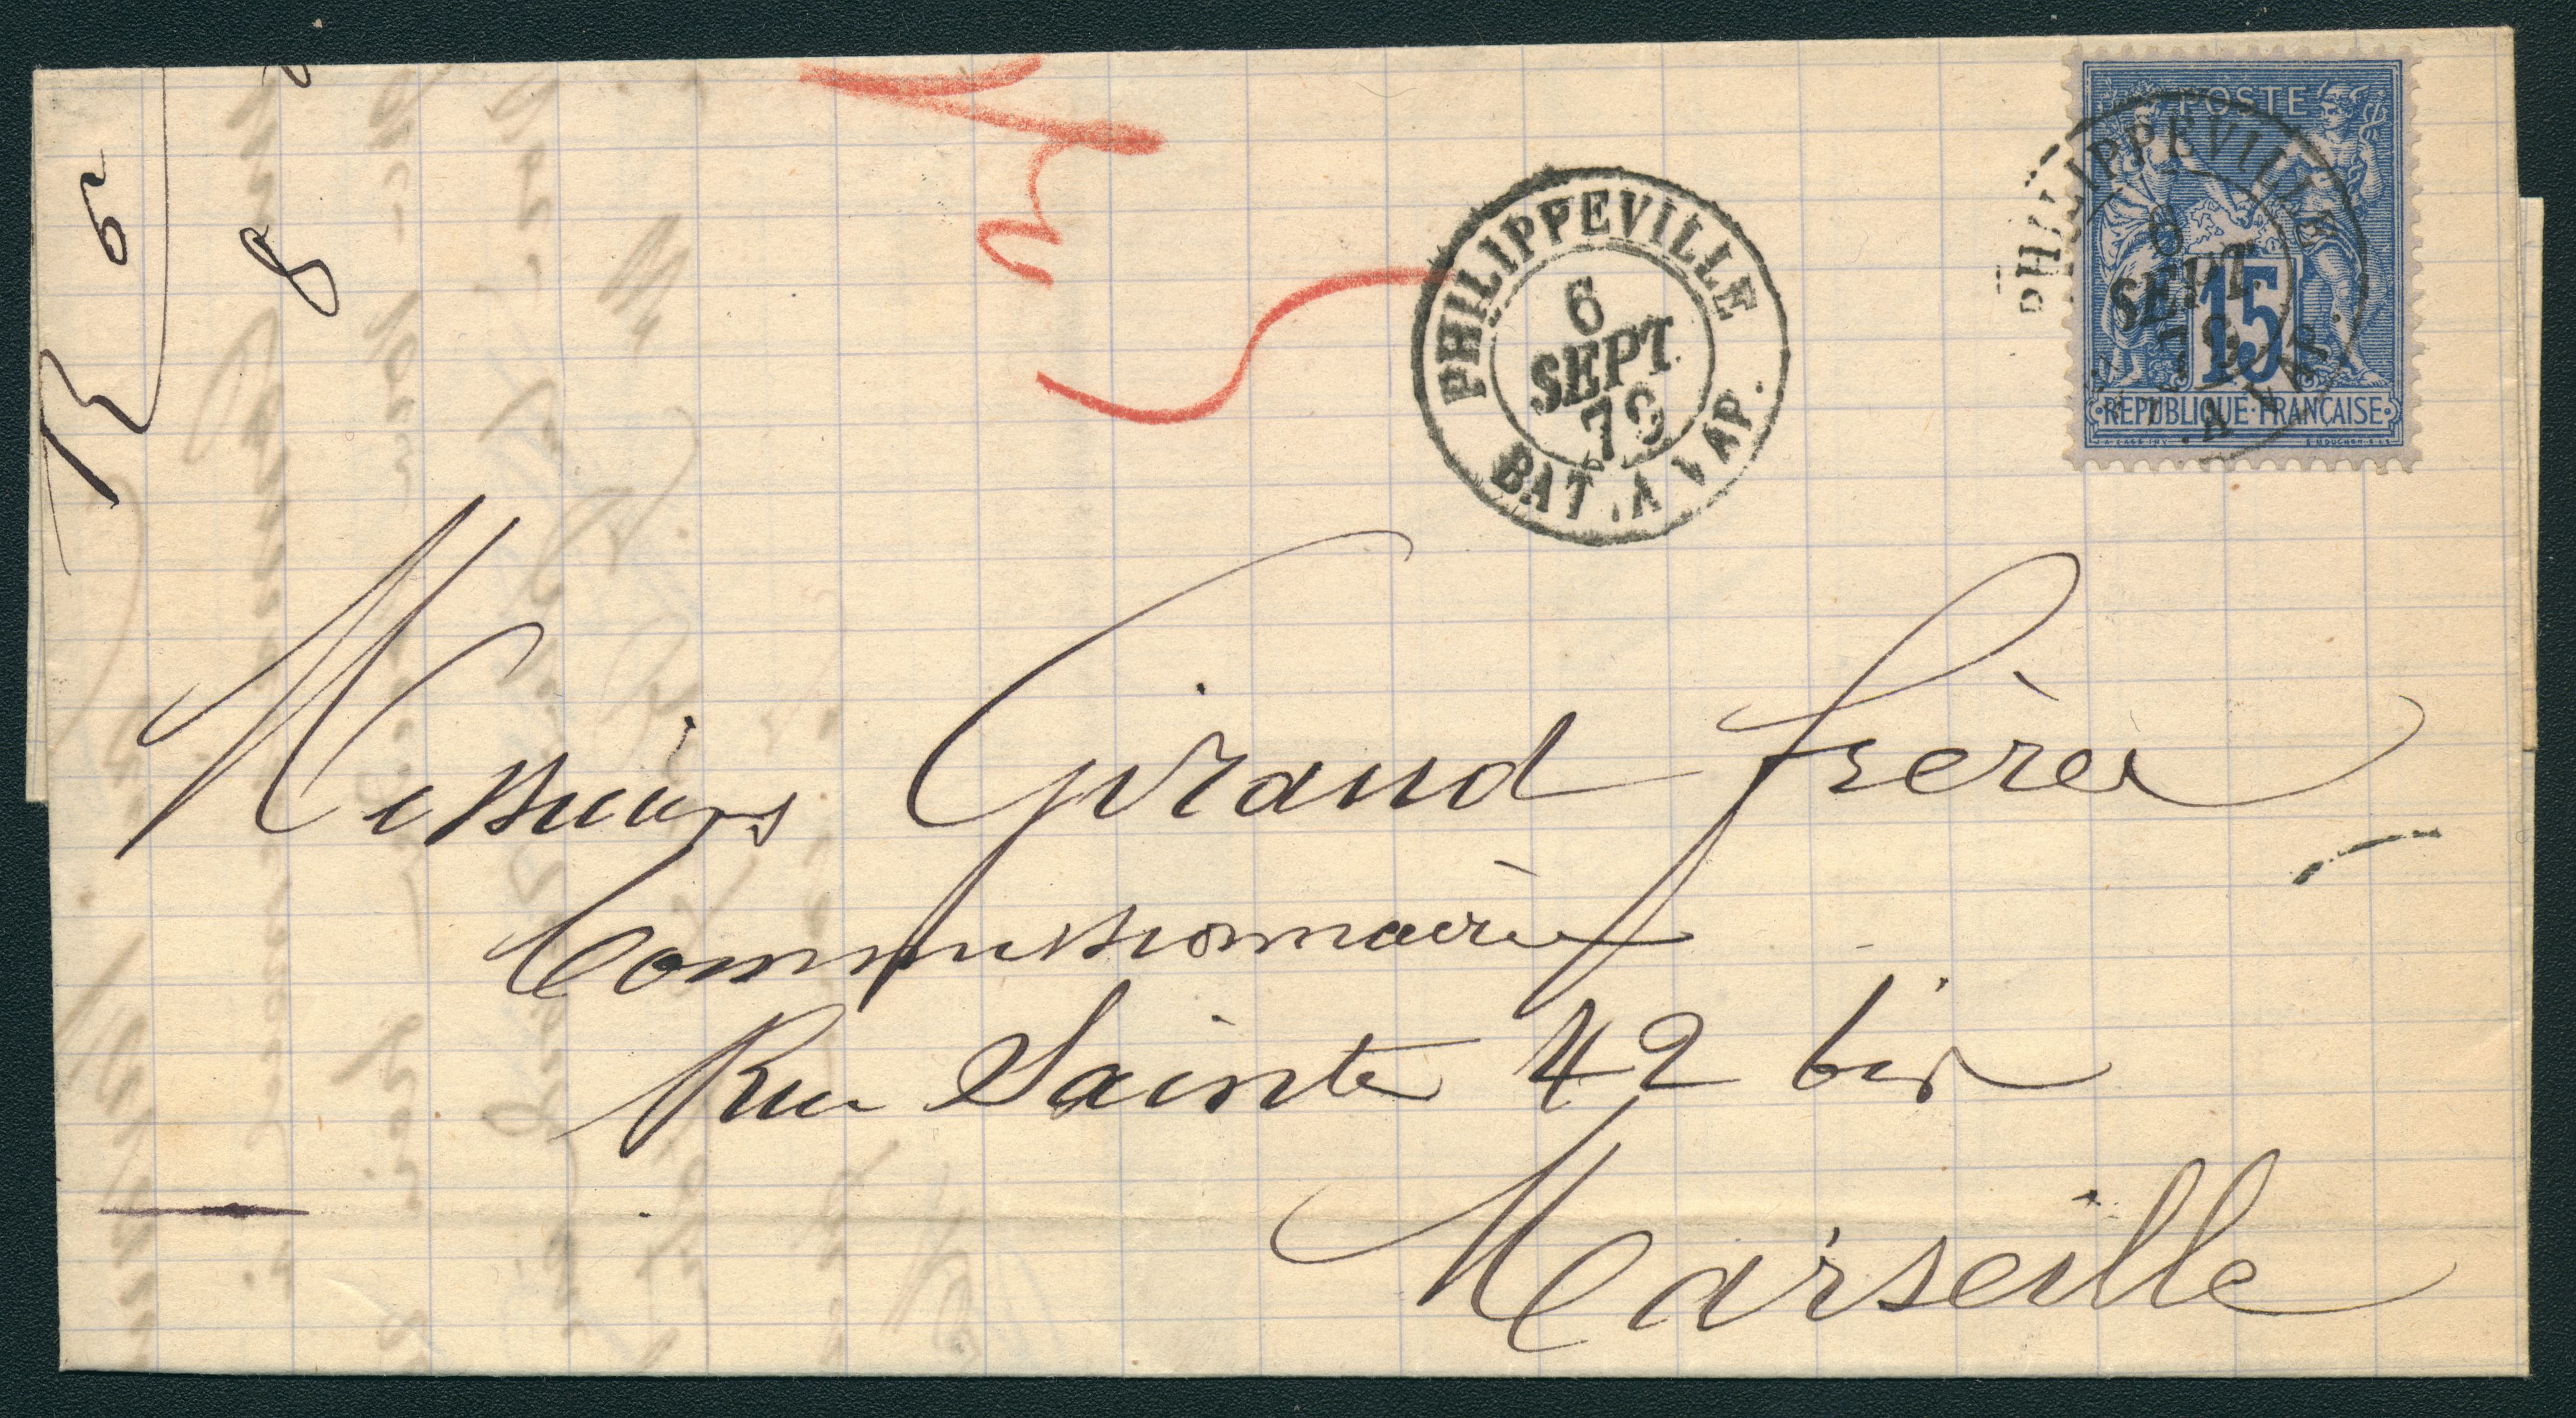 POSTE
PHILIPPEVILLE
6
SEPT
79
BAT. A VAP.
15
REPUBLIQUE FRANÇAISE
PHILIPPEVILLE
6
SEPT
79
BAT. A VAP.
8
Messieurs Giraud frères
Commissionnaires
Rue Sainte 42 bis
Marseille